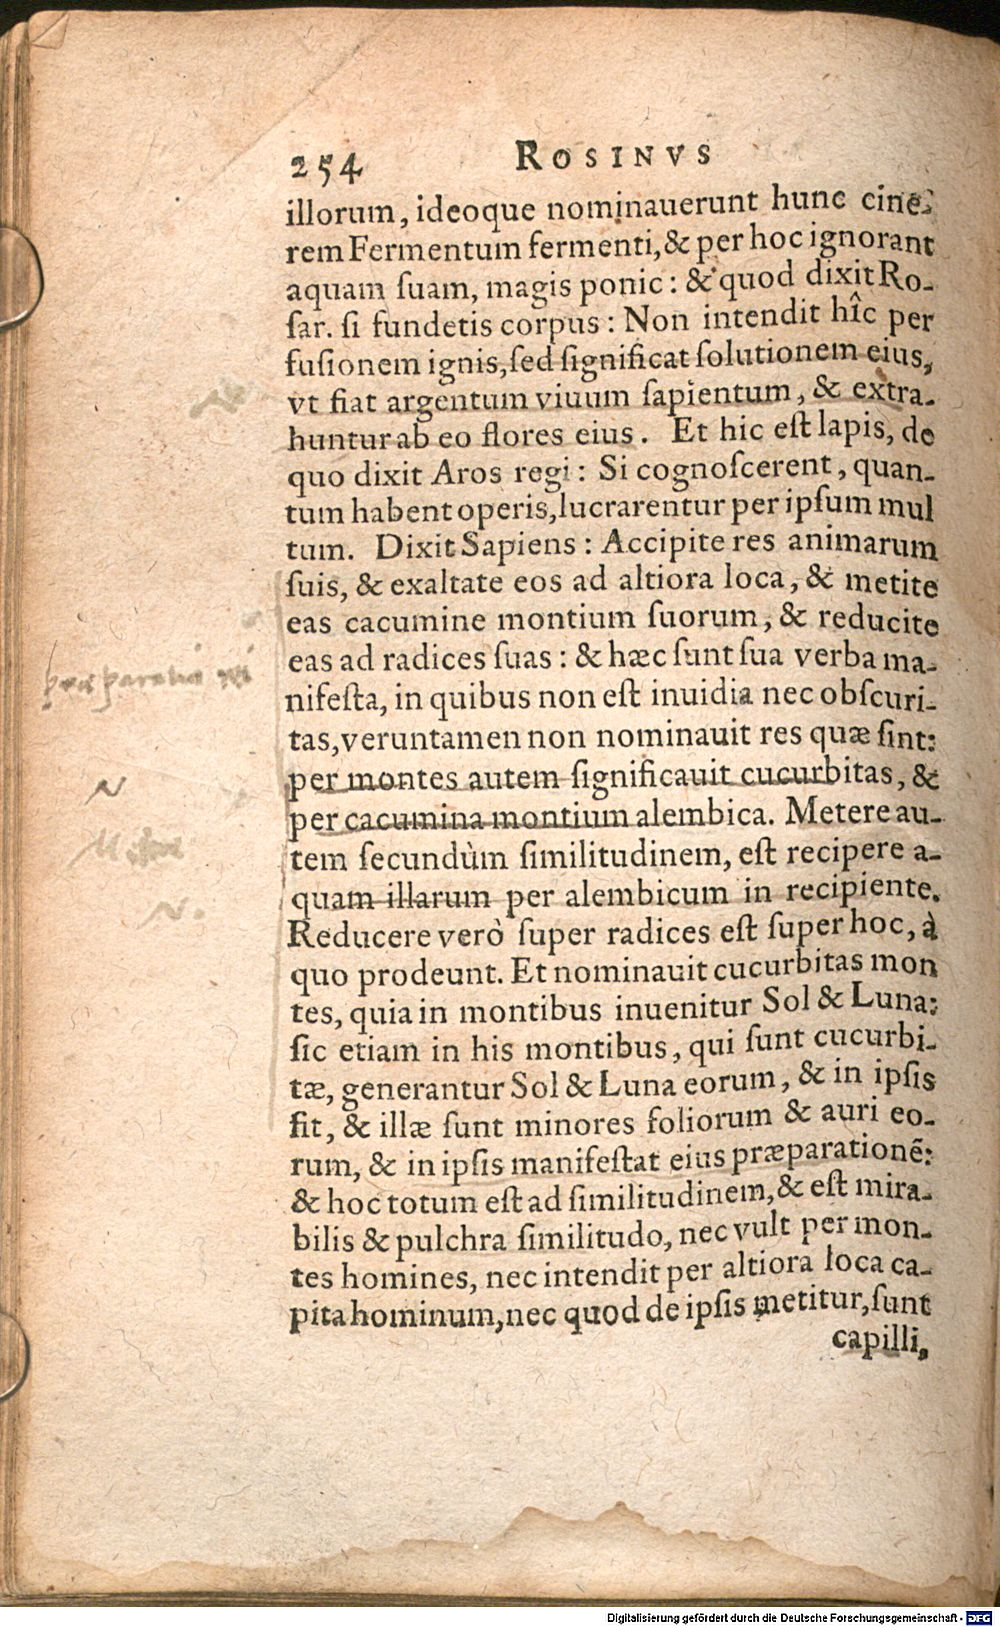 254 ROSINVS
illorum, ideoque nominauerunt hunc cine-
rem Fermentum fermenti, & per hoc ignorant
aquam ſuam, magis ponic: & quod dixit Ro-
ſar. ſi fundetis corpus: Non intendit hîc per
fuſionem ignis, ſed ſignificat ſolutionem eius,
vt fiat argentum viuum ſapientum, & extra-
huntur ab eo flores eius. Et hic eſt lapis, de
quo dixit Aros regi: Si cognoſcerent, quan-
tum habent operis, lucrarentur per ipſum mul
tum. Dixit Sapiens: Accipite res animarum
ſuis, & exaltate eos ad altiora loca, & metite
eas cacumine montium ſuorum, & reducite
eas ad radices ſuas: & hæc ſunt ſua verba ma-
præparatio
nifeſta, in quibus non eſt inuidia nec obſcuri-
tas, veruntamen non nominauit res quæ ſint:
per montes autem ſignificauit cucurbitas, &
N
per cacumina montium alembica. Metere au-
tem ſecundùm ſimilitudinem, eſt recipere a-
quam illarum per alembicum in recipiente.
N.
Reducere verò ſuper radices eſt ſuper hoc, à
quo prodeunt. Et nominauit cucurbitas mon
tes, quia in montibus inuenitur Sol & Luna:
ſic etiam in his montibus, qui ſunt cucurbi-
tæ, generantur Sol & Luna eorum, & in ipſis
fit, & illæ ſunt minores foliorum & auri eo-
rum, & in ipſis manifeſtat eius præparationẽ:
& hoc totum eſt ad ſimilitudinem, & eſt mira-
bilis & pulchra ſimilitudo, nec vult per mon-
tes homines, nec intendit per altiora loca ca-
pita hominum, nec quod de ipſis metitur, ſunt
capilli,
Digitalisierung gefördert durch die Deutsche Forschungsgemeinschaft - DFG